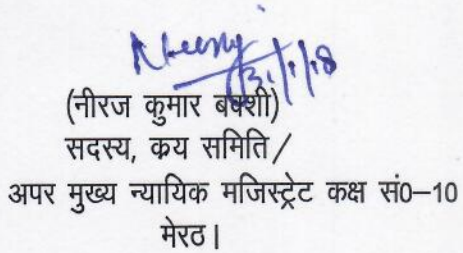 31/1/18
(नीरज कुमार बक्शी)
सदस्य, क्रय समिति /
अपर मुख्य न्यायिक मजिस्ट्रेट कक्ष सं0–10
मेरठ।